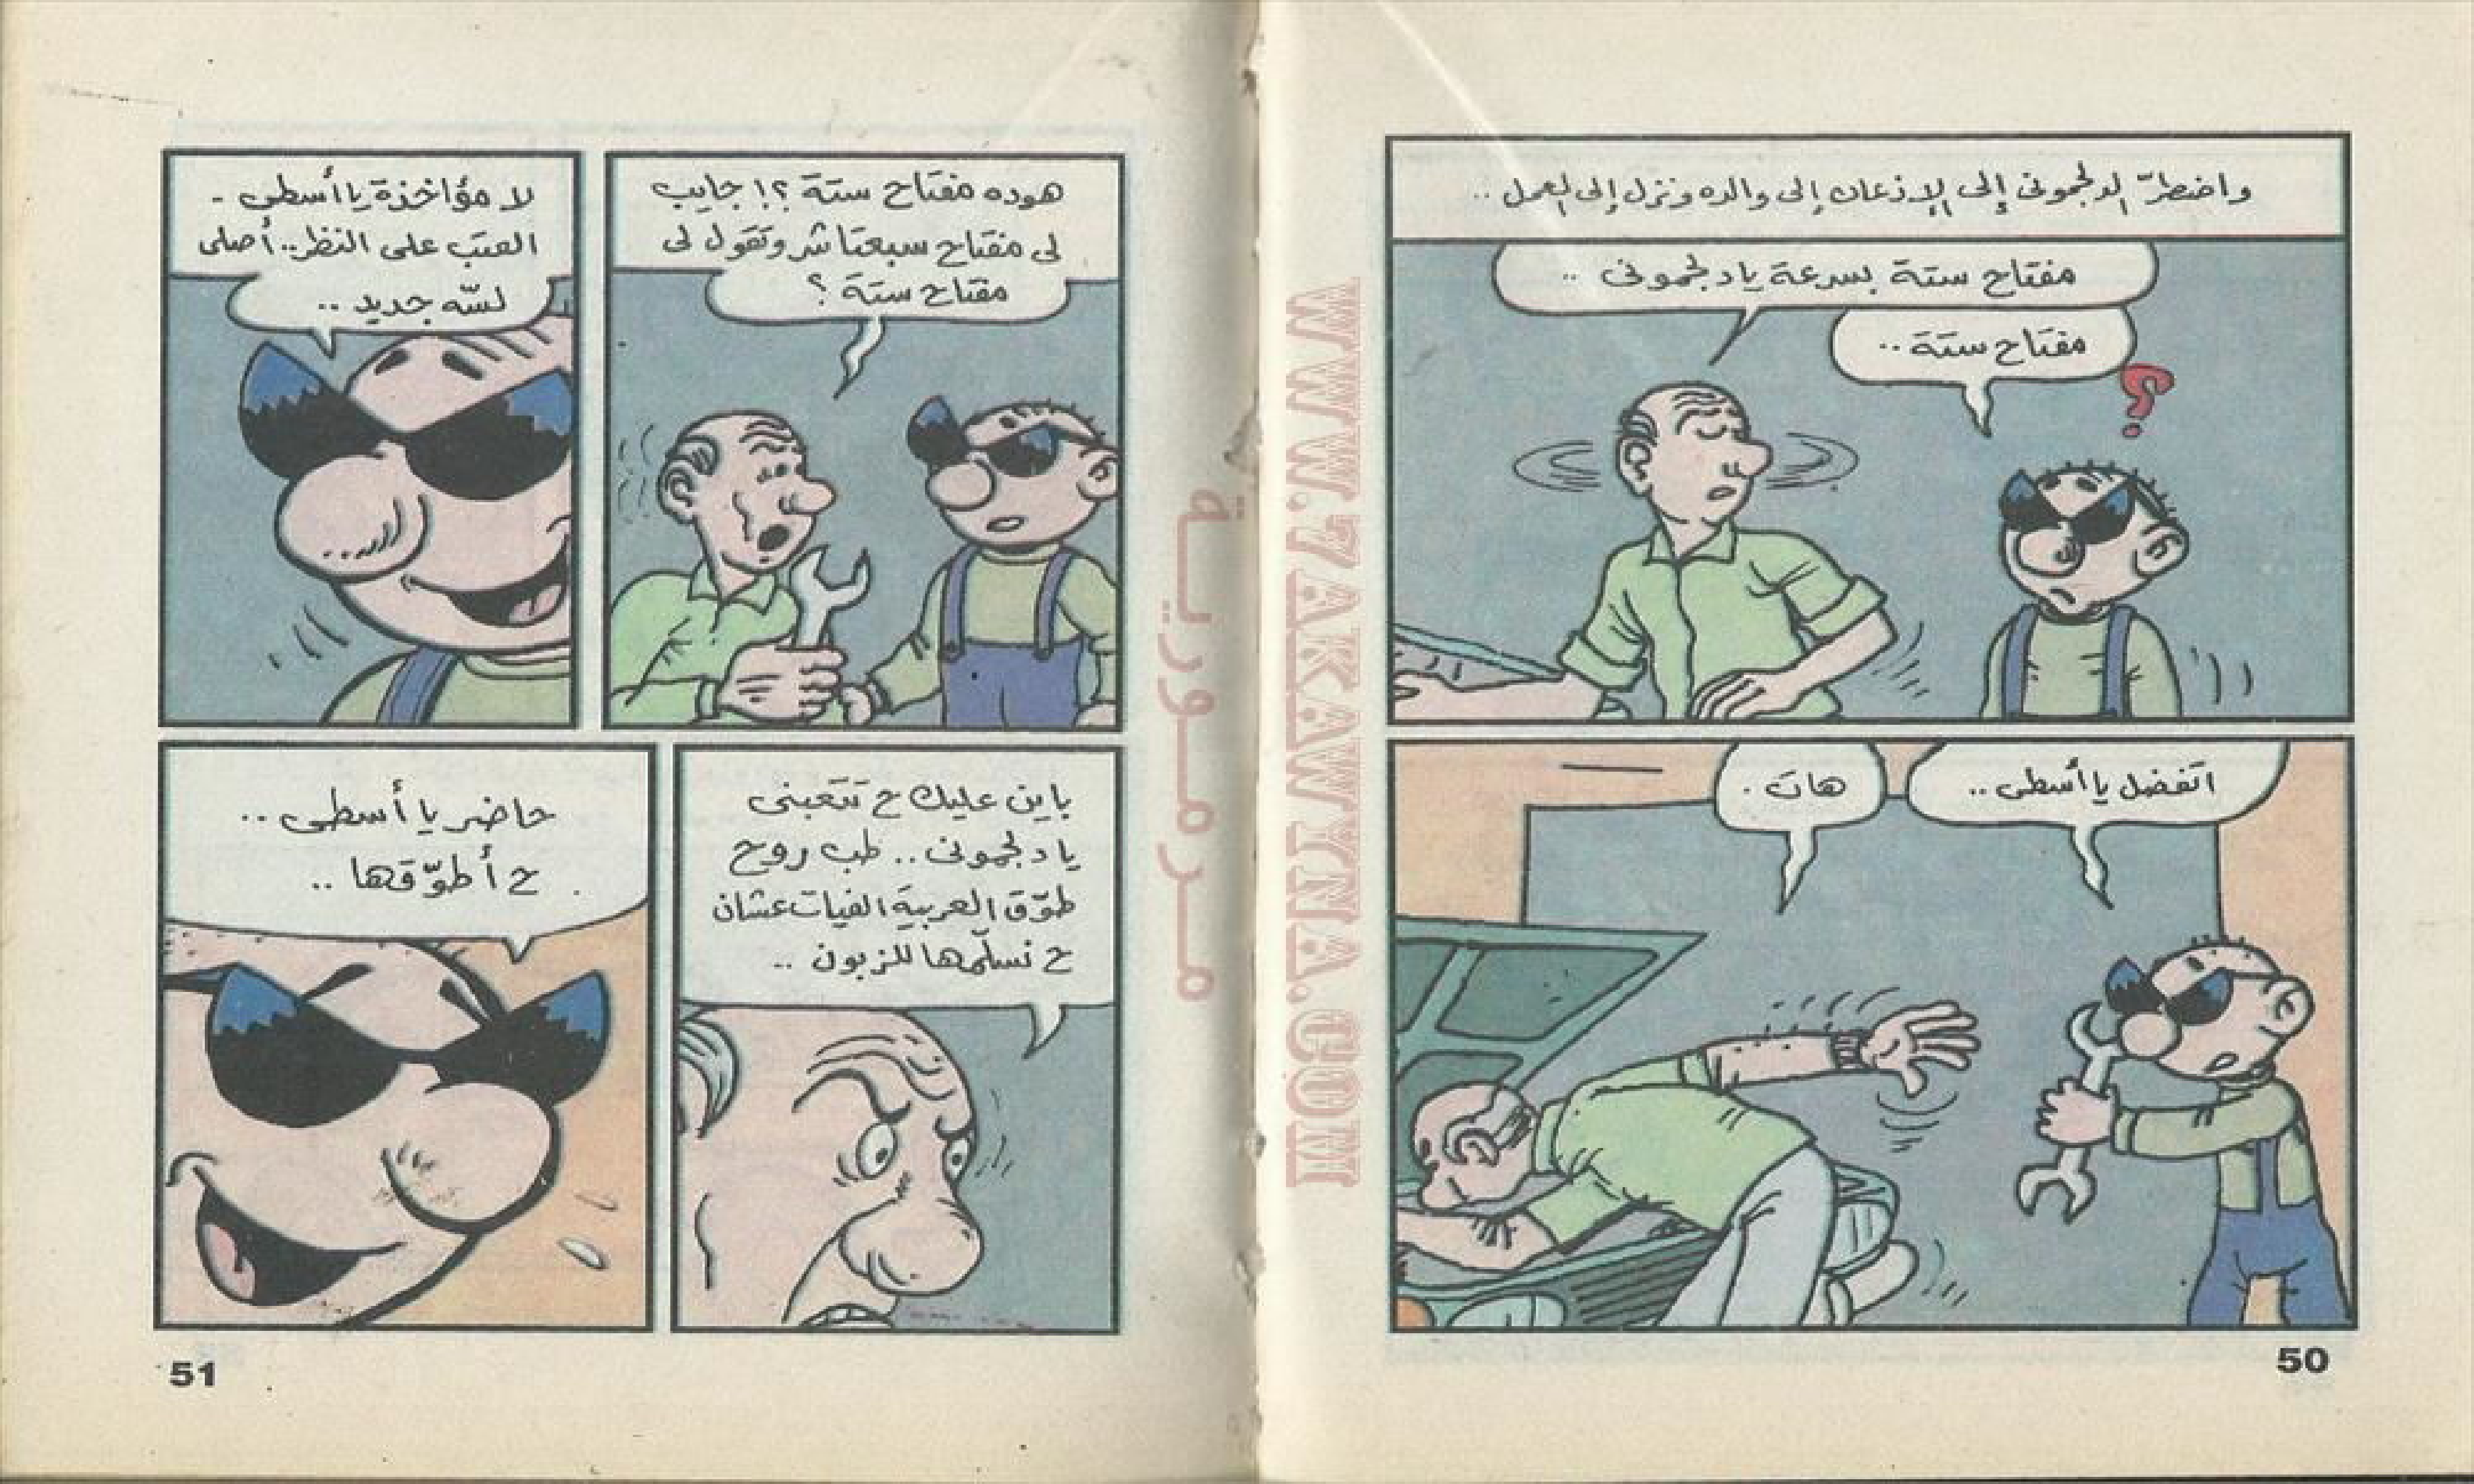 واضطرّ الدلجمونى إلى الإذعان إلى والده ونزل إلى العمل ..
مفتاح ستة بسرعة يا دلجمونى ..
مفتاح ستة ..
؟
اتفضل يا أسطى ..
هات .
50
هوده مفتاح ستة ؟! جايب
لى مفتاح سبعتاشر وتقول لى
مفتاح ستة ؟
لا مؤاخذة يا أسطى -
العتب على النظر .. أصلى
لسّه جديد ..
باين عليك ح تتعبنى
يا دلجمونى .. طب روح
طوّق العربية الفيات عشان
ح نسلّمها للزبون ..
حاضر يا أسطى ..
ح أطوّقها ..
51
مرمورية
WWW.7AKAWYNA.COM